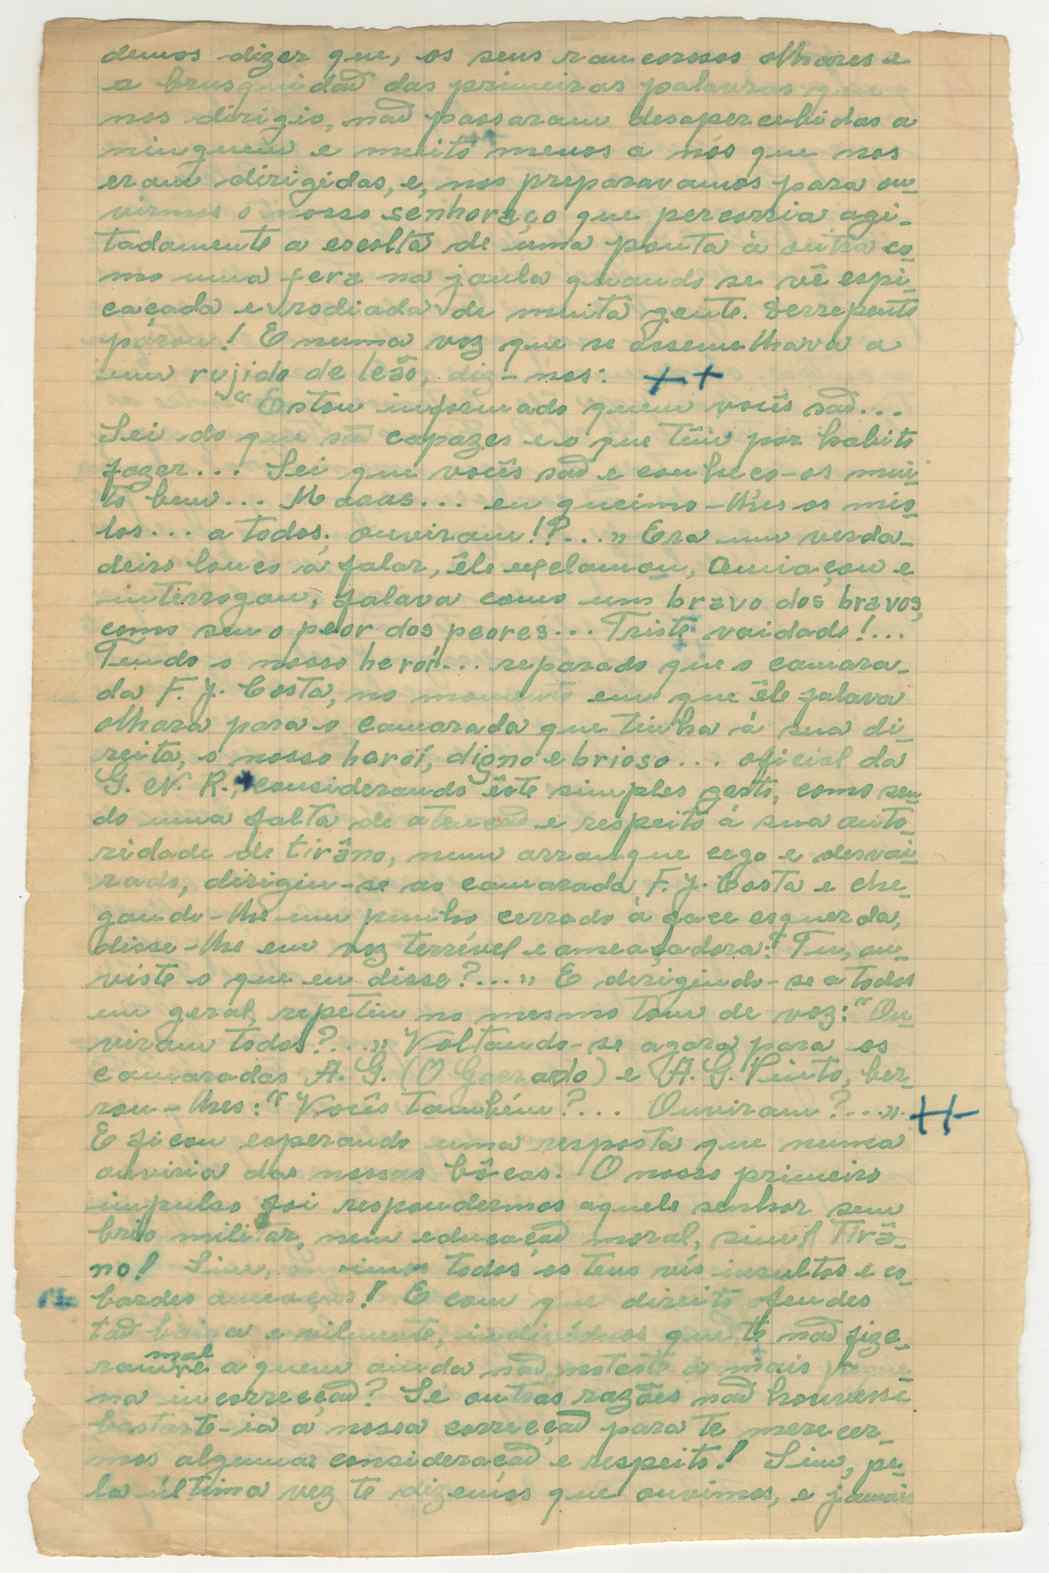 demos dizer que, os seus rancorosos olhares e
a brusquidad das primeiras palavras que
nos dirigio, nad passaram desapercebidas a
ninguem e muito menos a nós que nos
eram dirigidas, e, nos preparavamos para ou-
virmos o nosso senhoraço que percorria agi-
tadamente a escolta de uma ponta à outra co-
mo uma fera na jaula quando se vê espi-
caçada e rodiada de muita gente. Derrepente
párou! E numa voz que se assemelhava a
um rujido de leão, diz-nos: ++
"Estou informado quem vocês sad...
Sei do que sad capazes e o que têm por habito
fazer... Sei que vocês sad e conheço-os mui-
to bem... Maaas... eu queimo-lhes os mio-
los... a todos, ouviram!?..." Era um verda-
deiro louco a falar, êle exclamou, amiaçou e
interrogou, falava como um bravo dos bravos,
como seu o peor dos peores... Triste vaidade!...
Tendo o nosso herói!... reparado que o camara-
da F. J. Costa, no momento em que êle falava
olhara para o camarada que tinha á sua di-
reita, o nosso herói, digno e brioso... oficial da
G. N. R., considerando êste simples gesto, como sen-
do uma falta de atençad e respeito á sua auto-
ridade de tirâno, num arranque cego e desvai-
rado, dirigiu-se ao camarada F. J. Costa e che-
gando-lhe um punho cerrado á face esquerda,
disse-lhe em voz terrível e ameaçadora: "Tu, ou-
viste o que eu disse?..." E dirigindo-se a todos
em geral, repetiu no mesmo tom de voz: "Ou-
viram todos?..." Voltando-se agora para os
camaradas A. G. (O Goerardo) e A. G. Pinto, ber-
rou-lhes: "Vocês também?... Ouviram?..." ++
E ficou esperando uma resposta que nunca
ouviria das nossas bôcas. O nosso primeiro
impulso foi respondermos aquele senhor sem
brio militar, nem educaçad moral, sim! Tirâ-
no! Sim, ouvimos todos os teus vís insultos e co-
bardes ameaças! E com que direito ofendes
tad baixa e vilmente, individuos que te nad fize-
ram mal e a quem ainda nad notaste a mais peque-
na incorrecçad? Se outras razões nad houvesse
bastar-te-ia a nossa correcçad para te merecer-
mos alguma consideraçad e respeito! Sim, pe-
la última vez te dizemos que ouvimos, e jamais